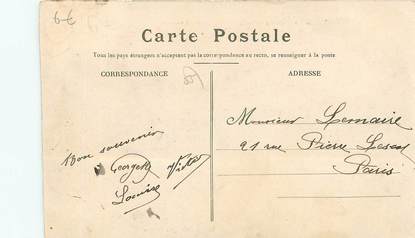 6-€
Carte Postale
Tous les pays étrangers n'acceptent pas la correspondance au recto, se renseigner à la poste
CORRESPONDANCE
ADRESSE
Bon souvenir
Georgette Victor
Louise
Monsieur Lemaire
21 rue Pierre Lescot
Paris